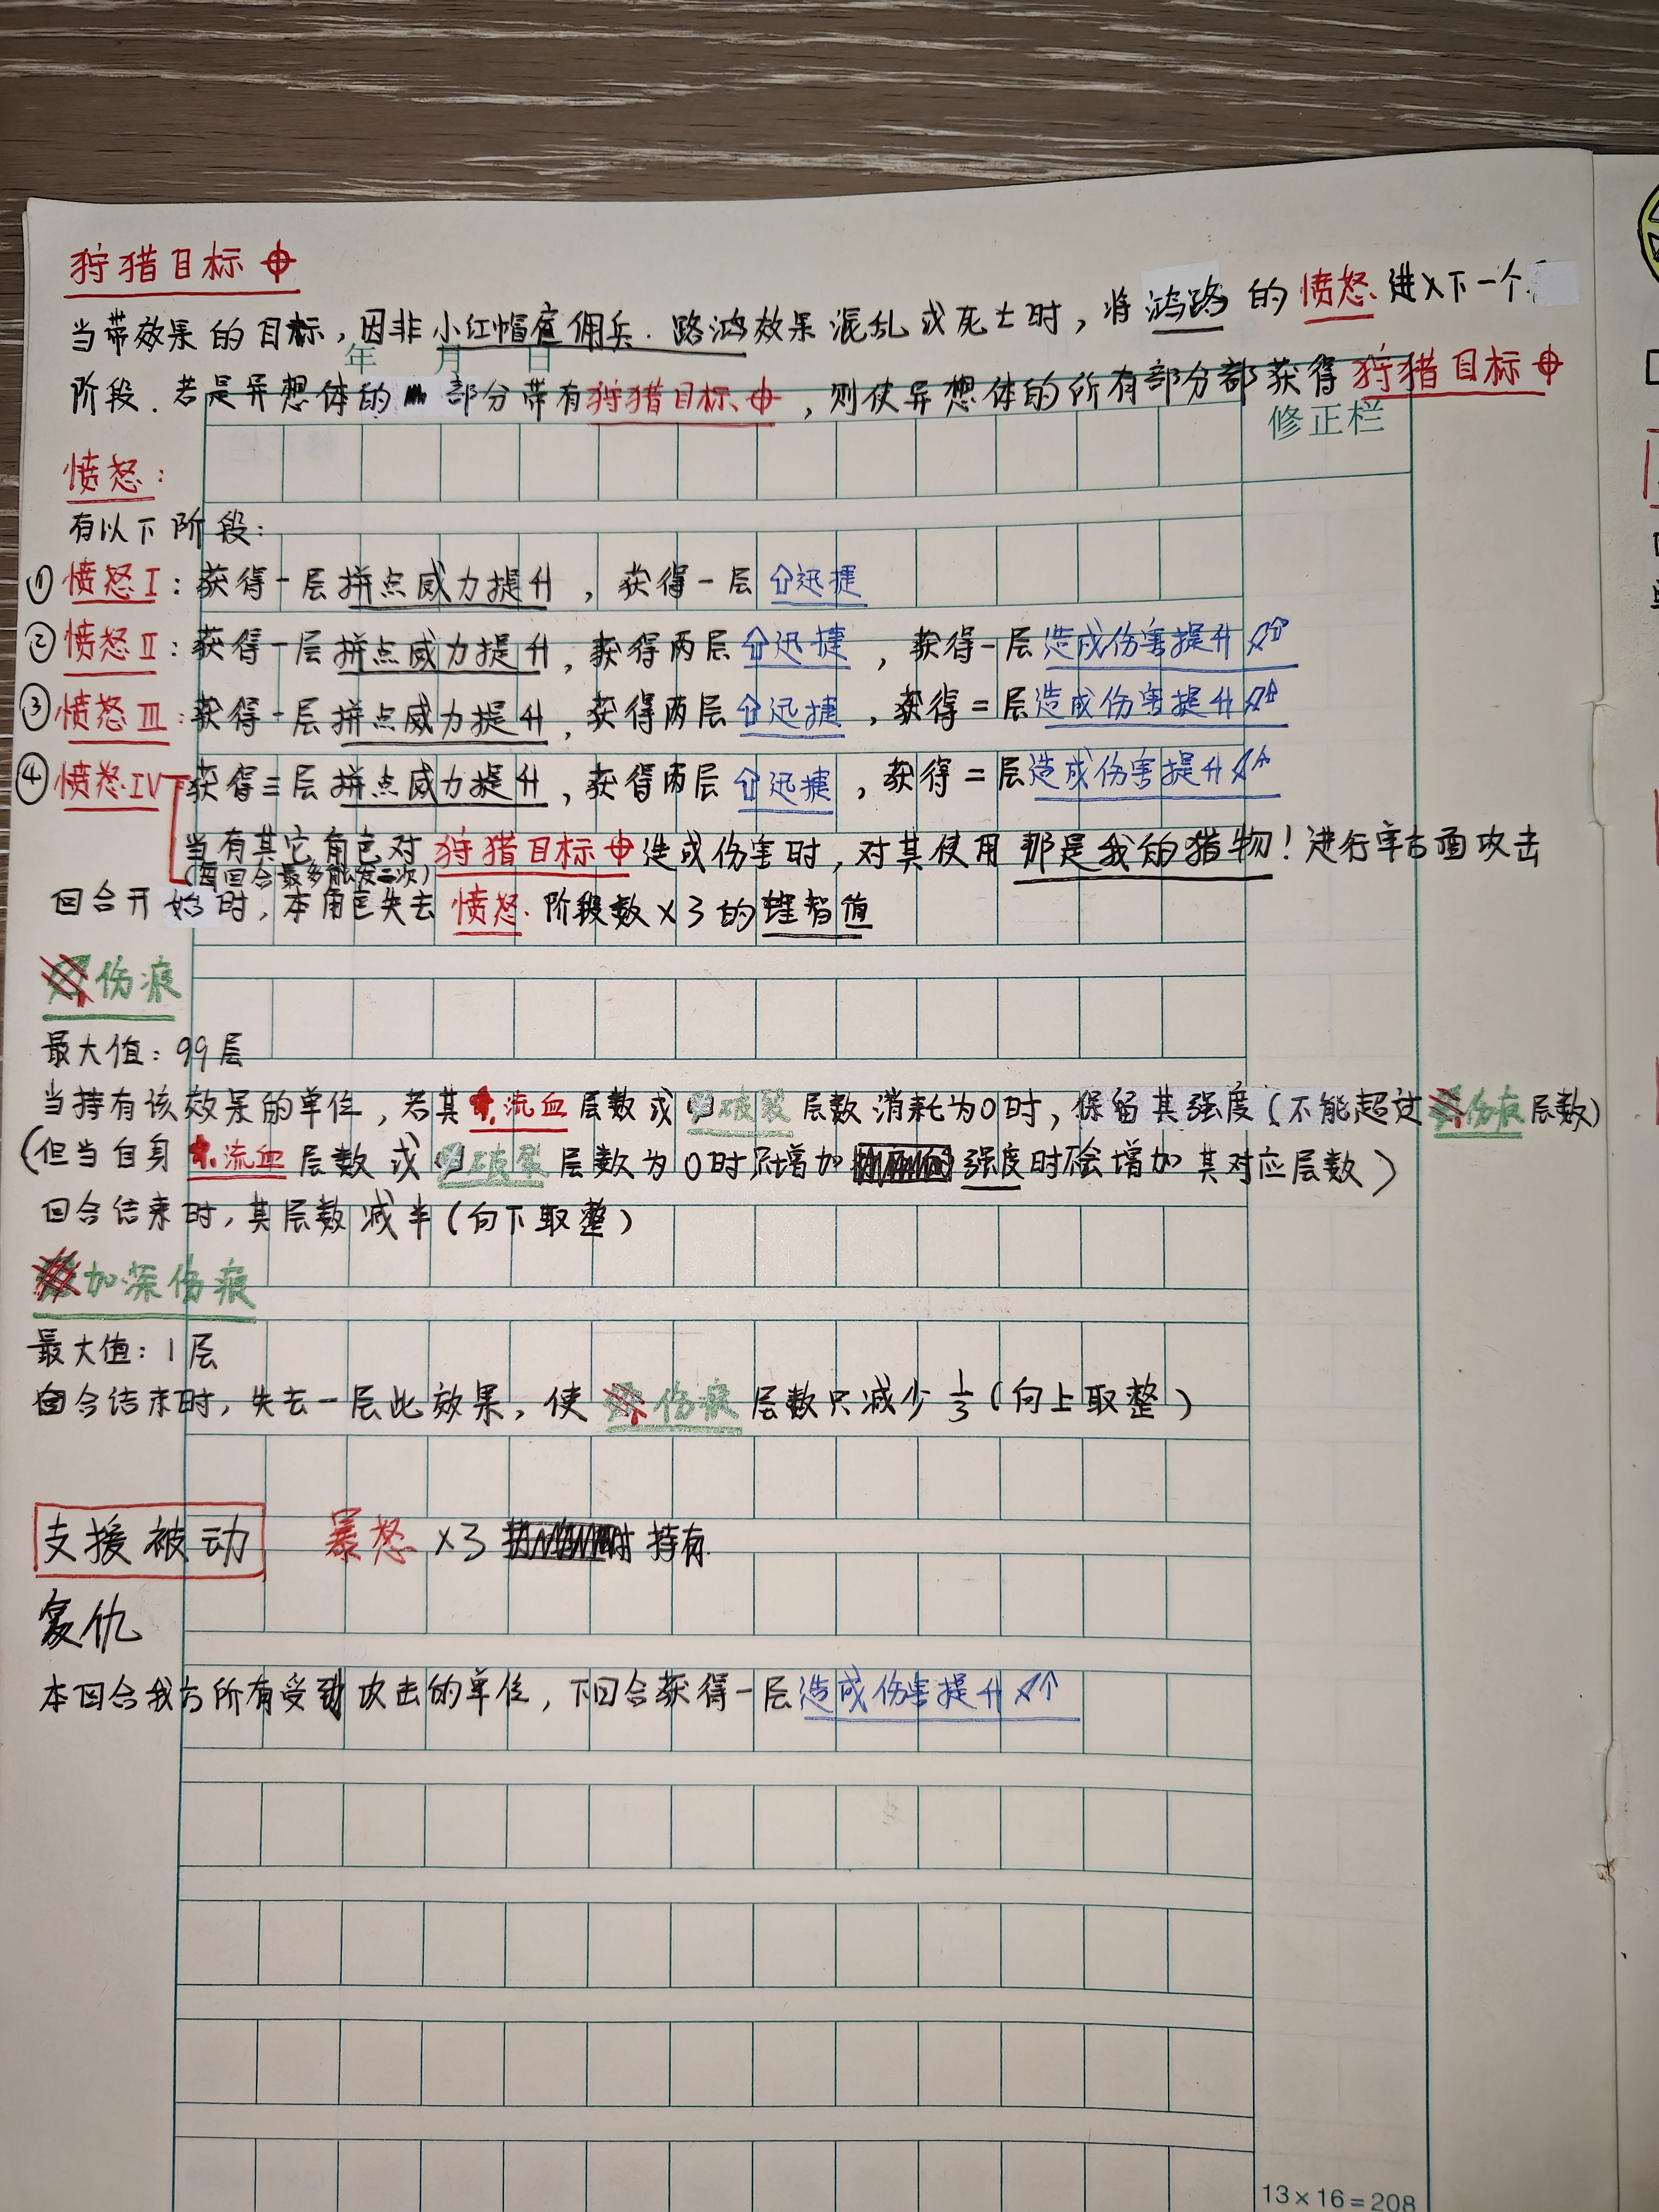 狩猎目标
当带效果的目标，因非小红帽雇佣兵．路鸿效果混乱或死亡时，将鸿路的愤怒进入下一个
年 月 日
阶段．若是异想体的部分带有狩猎目标，则使异想体的所有部分都获得狩猎目标
修正栏
愤怒：
有以下阶段：
① 愤怒Ⅰ：获得一层拼点威力提升，获得一层迅捷
② 愤怒Ⅱ：获得一层拼点威力提升，获得两层迅捷，获得一层造成伤害提升
③ 愤怒Ⅲ：获得一层拼点威力提升，获得两层迅捷，获得二层造成伤害提升
④ 愤怒Ⅳ 获得二层拼点威力提升，获得两层迅捷，获得二层造成伤害提升
当有其它角色对狩猎目标造成伤害时，对其使用那是我的猎物！进行单方面攻击
（每回合最多触发二次）
回合开始时，本角色失去愤怒阶段数×3的理智值
伤痕
最大值：99层
当持有该效果的单位，若其流血层数或破裂层数消耗为0时，保留其强度（不能超过伤痕层数）
（但当自身流血层数或破裂层数为0时只增加强度时不会增加其对应层数）
回合结束时，其层数减半（向下取整）
加深伤痕
最大值：1层
回合结束时，失去一层此效果，使伤痕层数只减少1/3（向上取整）
支援被动 暴怒×3 持有
复仇
本回合我方所有受到攻击的单位，下回合获得一层造成伤害提升
13×16=208